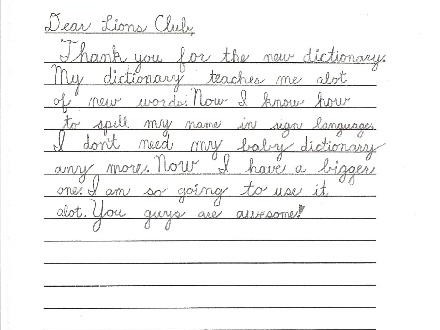 Dear Lions Club,
Thank you for the new dictionary.
My dictionary teaches me alot
of new words. Now I know how
to spell my name in sign language.
I don't need my baby dictionary
any more. Now I have a bigger
one. I am so going to use it
alot. You guys are awesome!